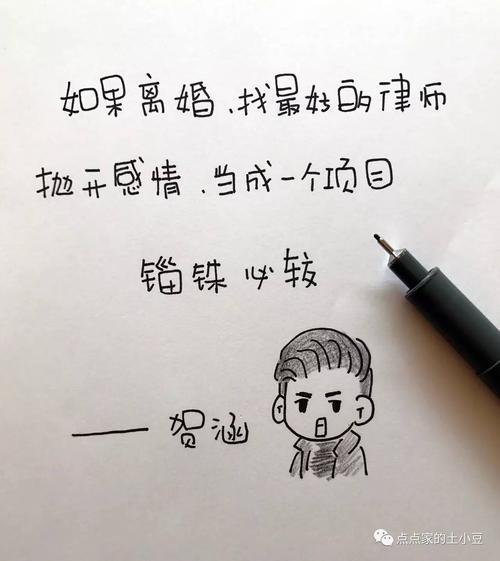 如果离婚、找最好的律师
抛开感情、当成一个项目
锱铢必较
——贺涵
点点家的土小豆